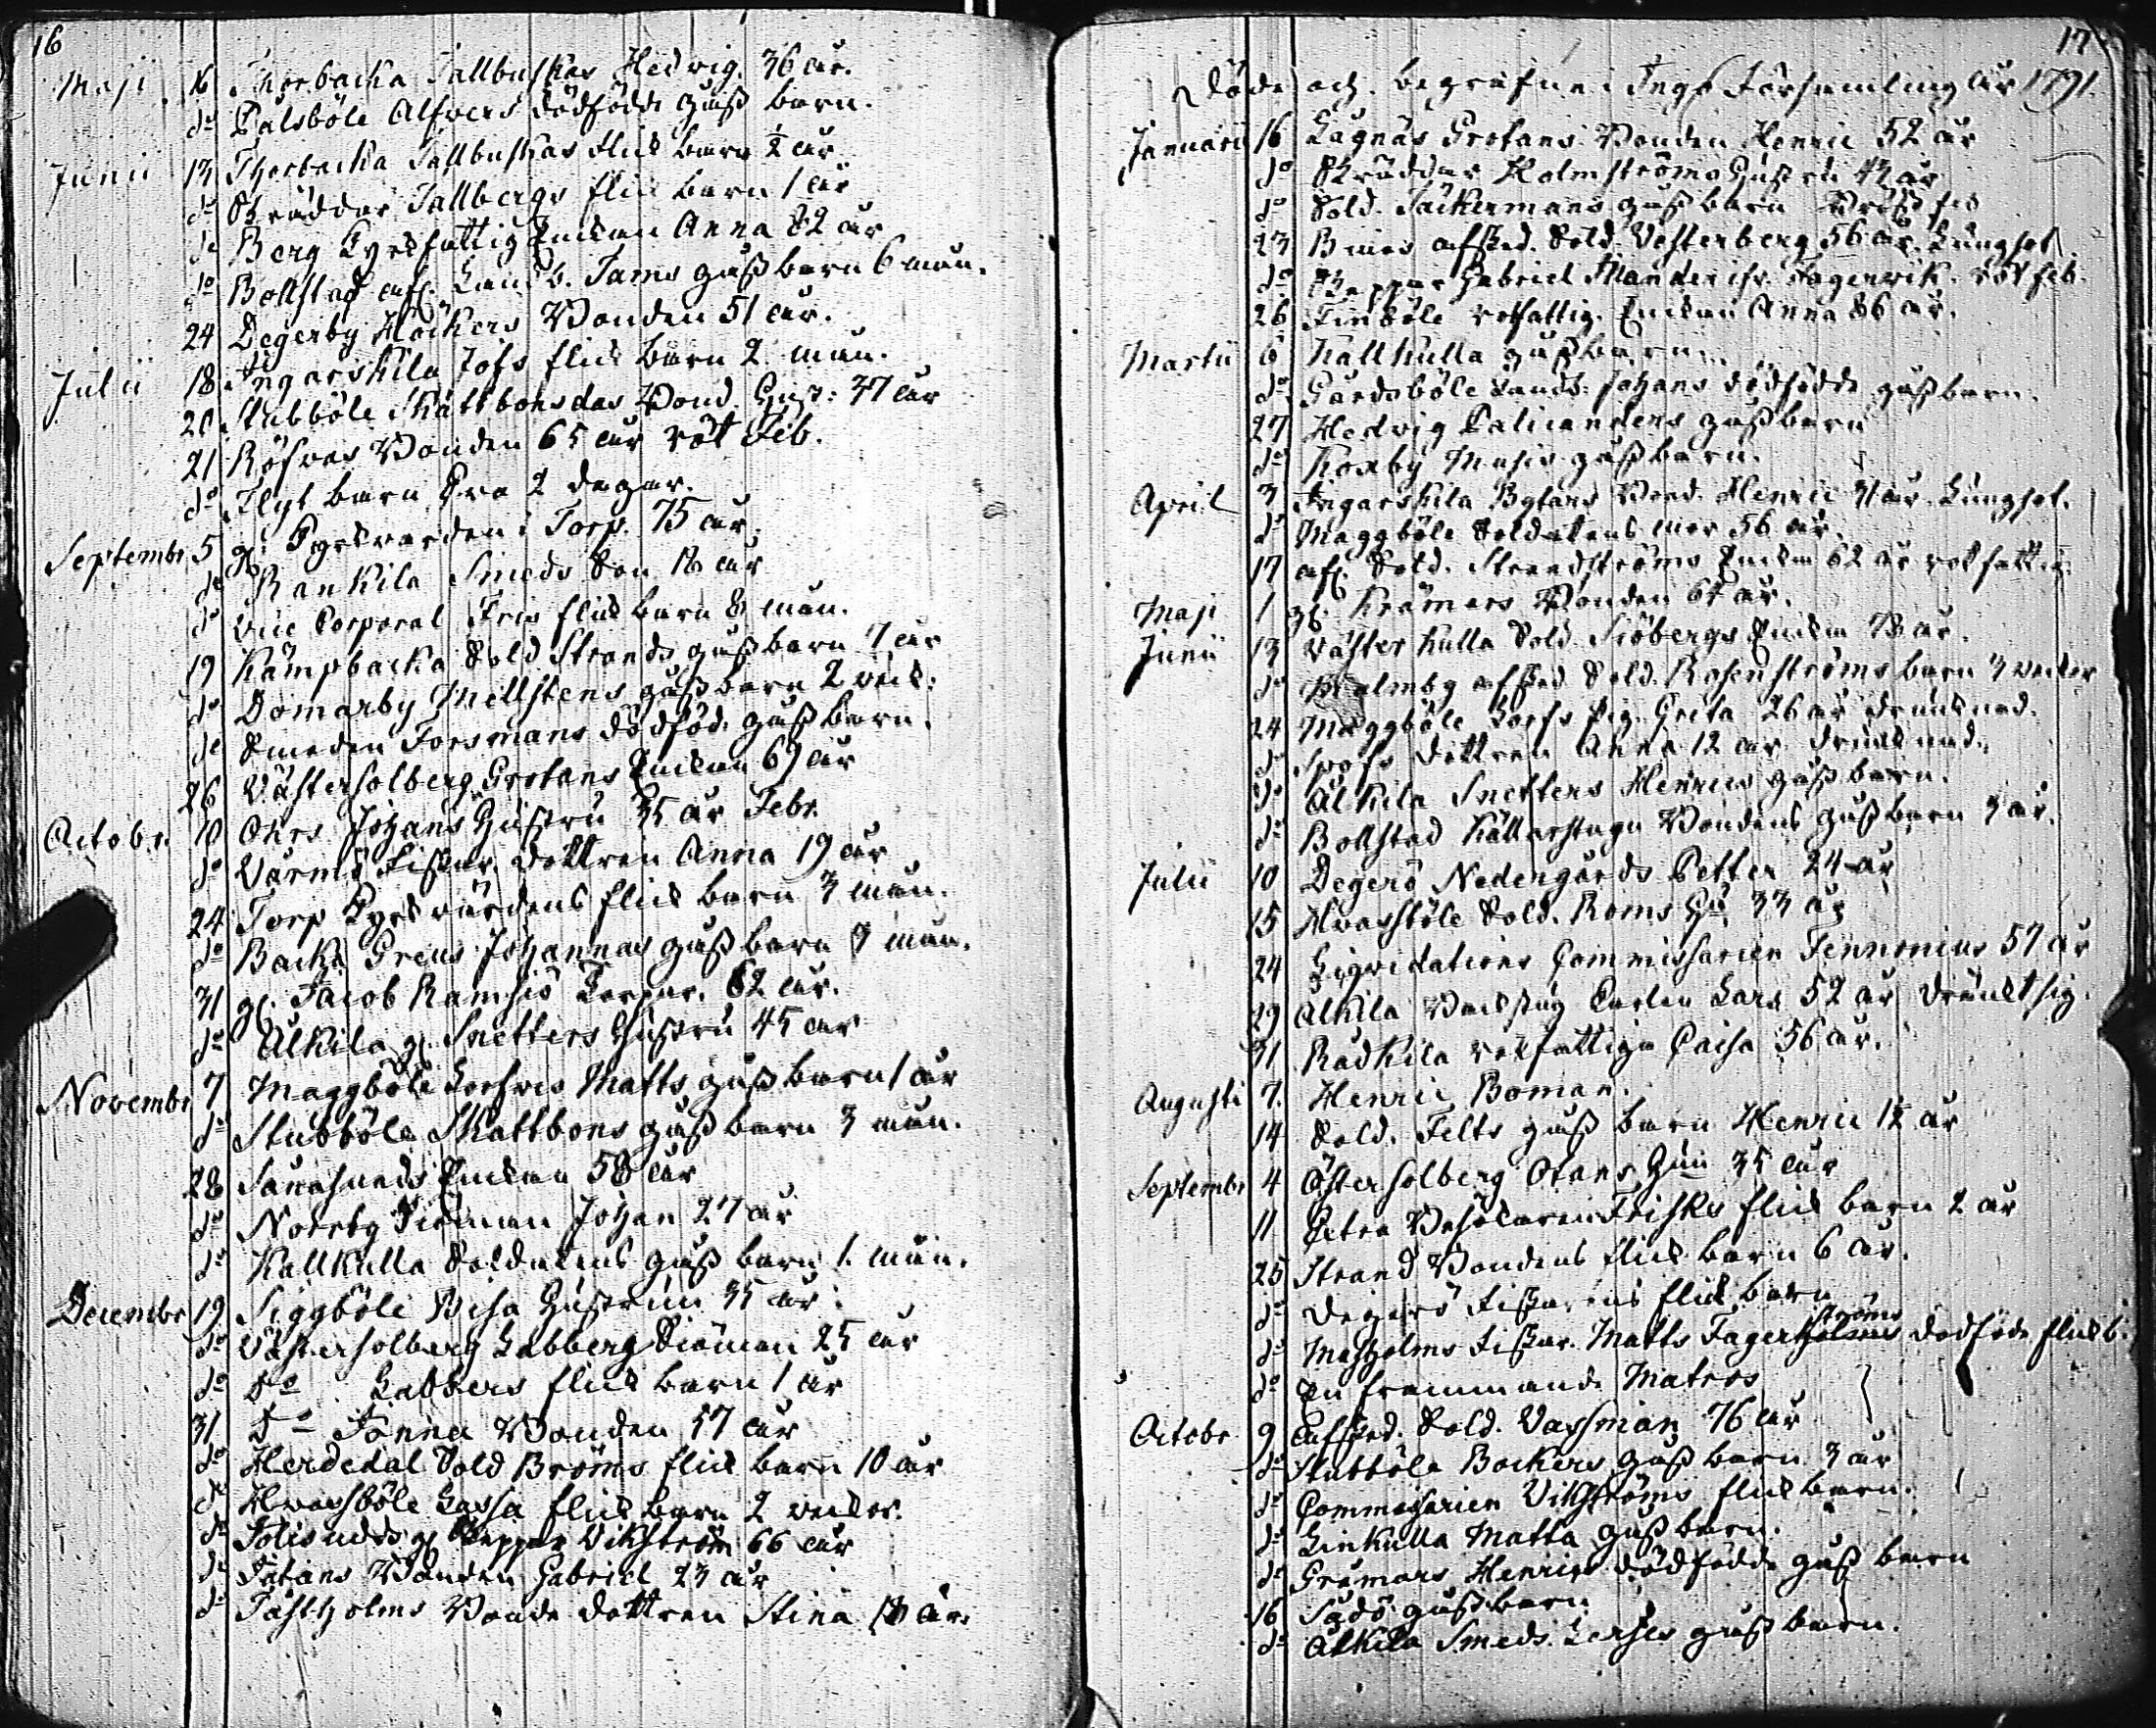 16
Maji 16 Thorbacka Tallbuskas Hedvig. 36 år.
do Pålsböle Alfvers dödfödde gåss barn.
Junii 13 Thorbacka Tallbuskas flick barn ½ år
do Skräddar Tallbergs flick barn 1 år
do Berg Kyrkfattig Enkan Anna 82 år
do Bollstad afsk. Landb. Jams gåss barn 6 mån.
24 Degerby Häckers Bonden 51 år.
Julii 18 Ingarskila Jofs flick barn 2 mån.
20 Stubböle Skattbondas Bond. Gust: 37 år
21 Röfvas Bonden 65 år röt Feb.
do Flyt barn Eva 2 dagar.
Septembr 5 gl. Kyrkvärden i Torp. 75 år.
do Rankila Smeds Son 18 år
do Vice Corporal Fris flick barn 8 mån.
19 Kämpbacka Sold Strands gåss barn 7 år
do Domarby Mellstens gåss barn 2 veck:
do Smeden Forsmans dödföd. gåss barn.
26 Västersolberg Grotans Enkan 69 år
Octobr. 10 Ohrs Johans Hustru 35 år Febr.
do Värnö Fiskar. dottren Anna 19 år
24 Torp Kyrkvärdens flick barn 3 mån.
do Backa Greus Johannas gåss barn 9 mån.
31 gl. Jacob Ramsiö Torpar. 62 år.
do Älkila gl. Snetters Hustru 45 år
Novembr 7 Maggböle Lorfves Matts gåss barn 1 år
do Stubböle Skattbons gåss barn 3 mån.
28 Enkan 58 år
do Norrby Siöman Johan 27 år
do Kallkulla Soldatens gåss barn 1. mån.
Decembr 19 Siggböle Bisa Hustrun 35 år
do Västersolberg Labberg Siöman 25 år
do Do Labbers flick barn 1 år
31 Do Fänna Bonden 57 år
do Herdedal Sold Bröms flick barn 10 år
do Hvassböle Lassa flick barn 2 veckor.
do gl Skeppar Vikström 66 år
do Bonden Gabriel 23 år
do Tästholms Bonde dottren Stina 18 år.
17
Döde och begrafne i Ingo Församling år 1791.
Januarii 16 Lågnäs Grotans Bonden Henric 52 år
do Skräddar Holmströms Hustru 43 år
do Sold. Säkermans gåss barn
23 afsked. Sold. Vesterberg 56 år. Lungsot
do Skeppar Gabriel Mander ifr. Fagervik. röt feb.
26 Finböle rotfattig. Enkan Anna 86 år.
Martii 6 Kallkulla gåss barn
do Gårdsböle Landb: Johans dödfödde gåss barn.
27 Hedvig Palicanders gåss barn
do Koxby Majis gåss barn.
April 3 Ingarskila Bytars Bond. Henric 31 år. Lungsot.
do Maggböle Soldatens mor 56 år.
17 afsk. Sold. Strandströms Enkan 62 år rotfattig
Maji 1 gl. Krämars Bonden 67 år.
Junii 13 Västerkulla Sold. Siöbergs Enkan 78 år.
do Malmby afsked. Sold. Rosenströms barn 3 veckor
24 Maggböle Lorfs Pig. Greta 26 år drunknad.
do dottren Anna 12 år drunknad.
do Älkila Snetters Henrics gåss barn.
do Bollstad Källarstugu Bondens gåss barn 3 år.
Julii 10 Degerö Nedergårds Petter 24 år
15 Hvassböle Sold. Roms Hu. 33 år
24 Liqvidations Commissarien Fennonius 57 år
29 Alkila Backstug Carlen Lars 52 år dränkt sig.
31 Rådkila rotfattiga Caisa 56 år.
Augusti 7. Henric Boman.
14 Sold. Felts gåss barn Henric 1½ år
Septembr 4 Östersolberg Otans Hu. 35 år
11 Petra Besökaren Frisks flick barn 2 år
25 Strand Bondens flick barn 6 år.
do Degerö Fiskarens flick barn
do Fiskar. Matts Fagerholms ströms dödföde flick b.
do en frammande Matros
Octobr 9 Afsked. Sold. Vassman 76 år
do Stubböle Backers gåss barn 3 år
do Commissarien Vikströms flick barn.
do Linkulla Matta gåss barn.
do Grämars Henrics dödfödde gåss barn
16 gåss barn
do Älkila Smeds Lerses gåss barn.